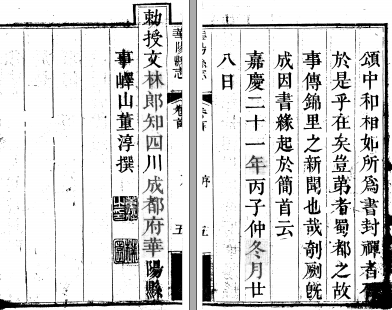 頌中和相如所爲書封禪者不
於是乎在矣豈第者蜀都之故
事傳錦里之新聞也哉剞劂旣
成因書緣起於簡首云
嘉慶二十一年丙子仲冬月廿
八日
序
五
華陽縣志
卷首
五
勅授文林郎知四川成都府華陽縣
事嶧山董淳撰